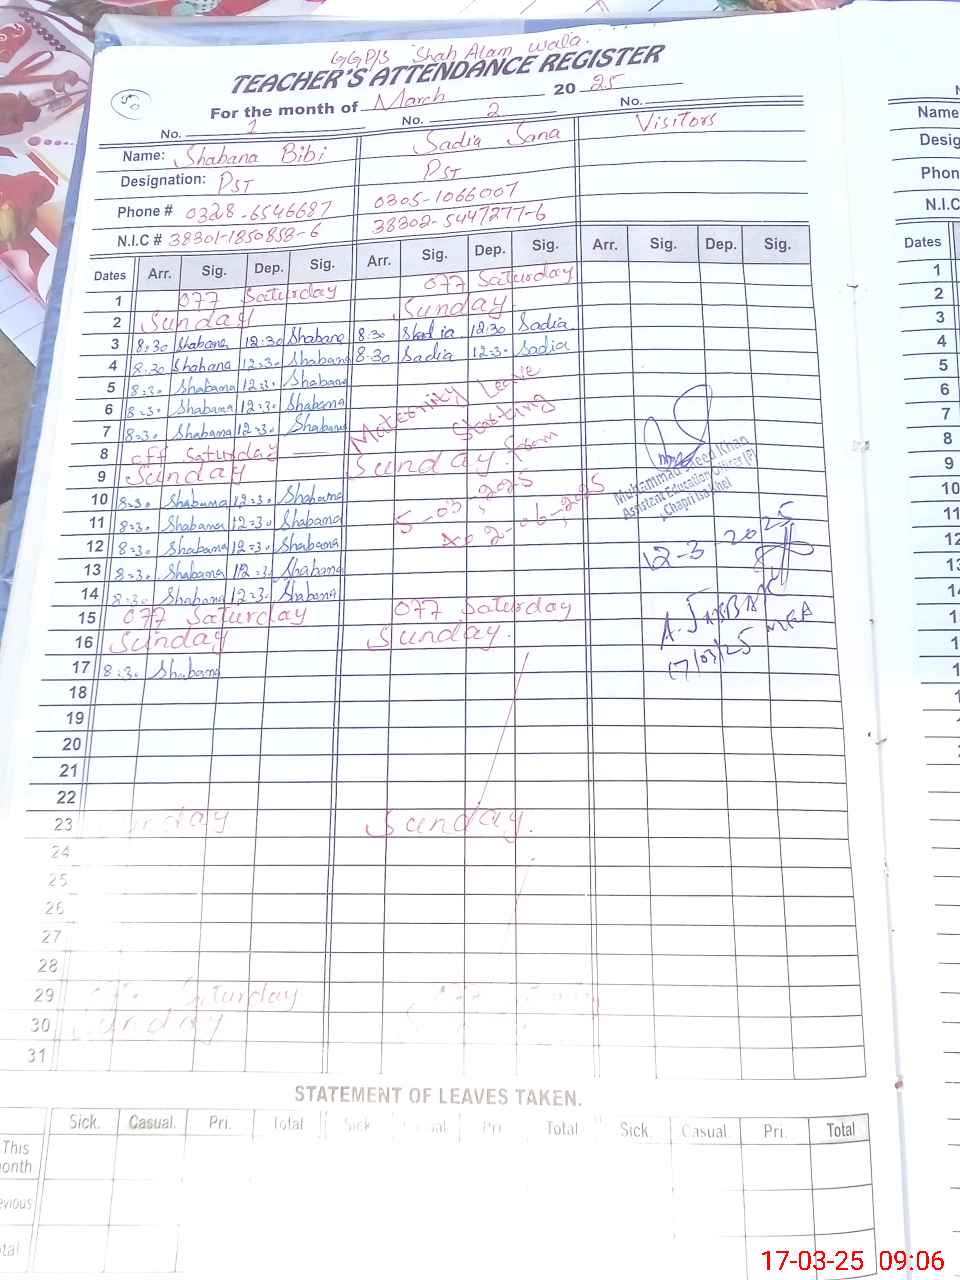 GGP/S Shah Alam wala.
TEACHER'S ATTENDANCE REGISTER
50
For the month of March 2025
No. 1 No. 2 No.
Name: Shabana Bibi Sadia Sana Visitors
Designation: PST PST
Phone # 0328-6546687 0305-1066007
N.I.C # 38301-1850858-6 38302-5447277-6
Dates Arr. Sig. Dep. Sig. Arr. Sig. Dep. Sig. Arr. Sig. Dep. Sig.
1 off Saturday off Saturday
2 Sunday Sunday
3 8:30 Shabana 12:30 Shabana 8:30 Sadia 12:30 Sadia
4 8:30 Shabana 12:30 Shabana 8:30 Sadia 12:30 Sadia
5 8:30 Shabana 12:30 Shabana
6 8:30 Shabana 12:30 Shabana
7 8:30 Shabana 12:30 Shabana
Maternity Leave
Starting
from
5-03-2025
to 2-06-2025
8 off Saturday
9 Sunday Sunday
10 8:30 Shabana 12:30 Shabana
11 8:30 Shabana 12:30 Shabana
12 8:30 Shabana 12:30 Shabana
13 8:30 Shabana 12:30 Shabana
14 8:30 Shabana 12:30 Shabana
Muhammad Saeed Khan
Assistant Education Officer (P)
Chapri
12-3 2025
15 off Saturday off Saturday
16 Sunday Sunday.
17 8:30 Shabana
MEA
17/03/25
18
19
20
21
22
23 Sunday.
24
25
26
27
28
29 Saturday
30 Sunday
31
STATEMENT OF LEAVES TAKEN.
Sick. Casual. Pri. Total Sick. Casual. Pri. Total Sick. Casual. Pri. Total
This
onth
evious
tal
Name
Desig
Phon
N.I.C
Dates
1
2
3
4
5
6
7
8
9
10
11
12
17-03-25 09:06